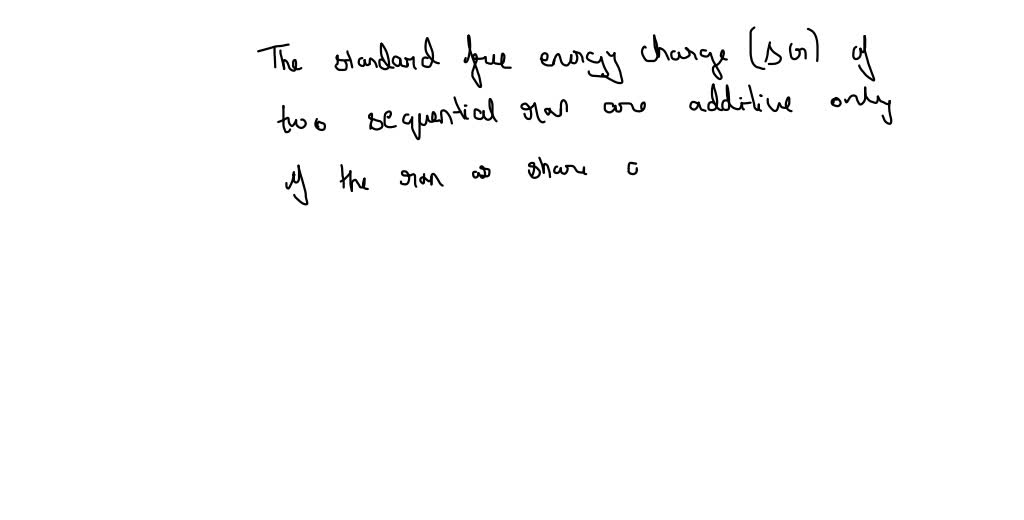 The standard free energy change (ΔG) of
two sequential rxn are additive only
if the rxn as share a